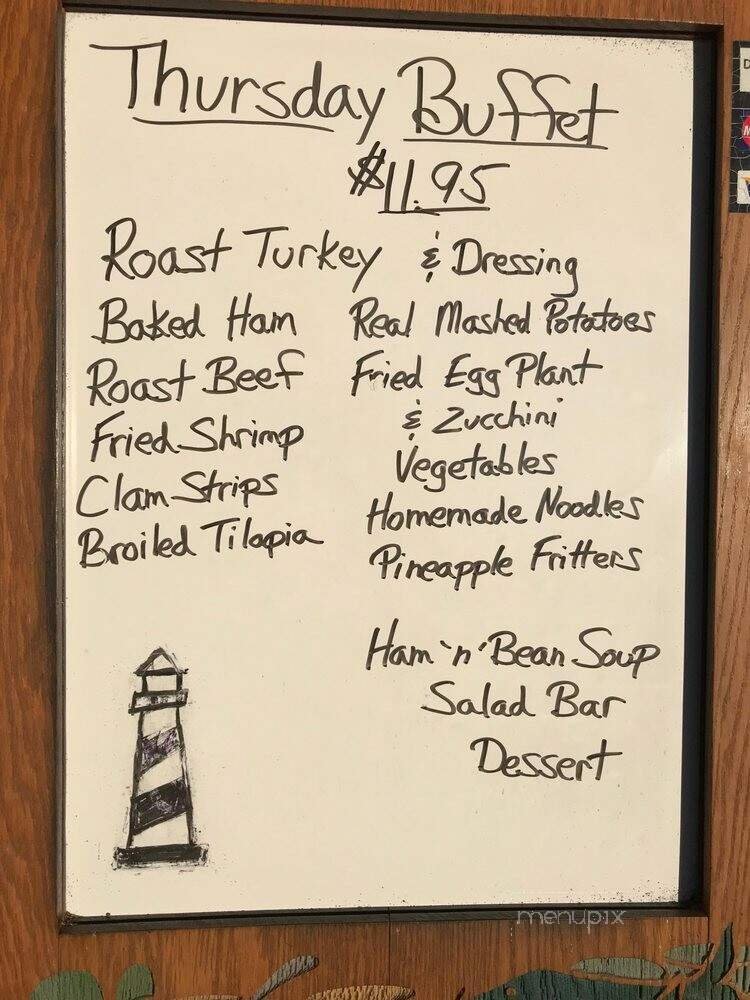 Thursday Buffet
$11.95
Roast Turkey & Dressing
Baked Ham
Roast Beef
Fried Shrimp
Clam Strips
Broiled Tilapia
Real Mashed Potatoes
Fried Egg Plant
& Zucchini
Vegetables
Homemade Noodles
Pineapple Fritters
Ham 'n' Bean Soup
Salad Bar
Dessert
menupix